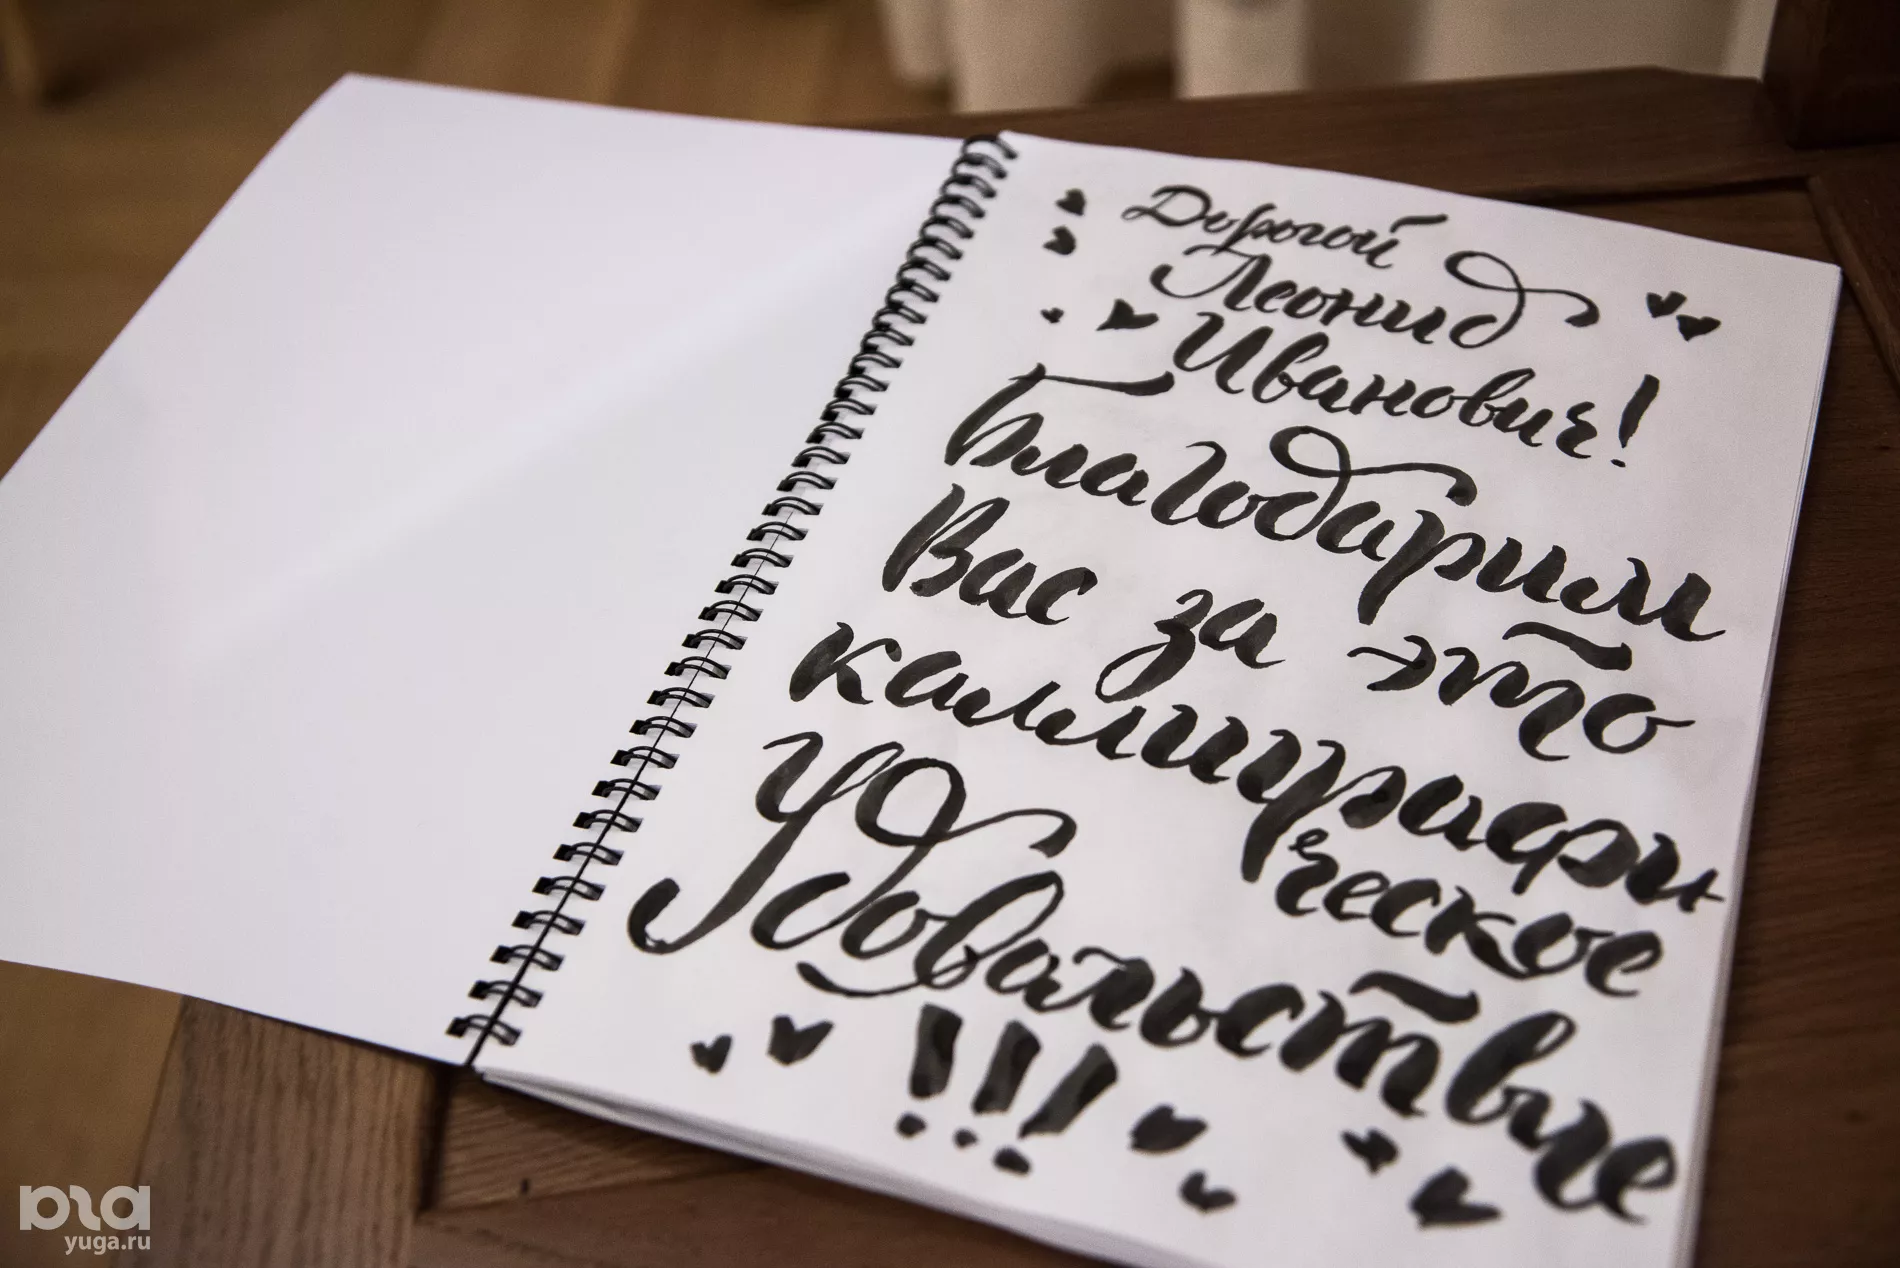 Дорогой
Леонид
Иванович!
Благодарим
Вас за это
каллиграфи-
ческое
Удовольствие
!!!
yuga.ru